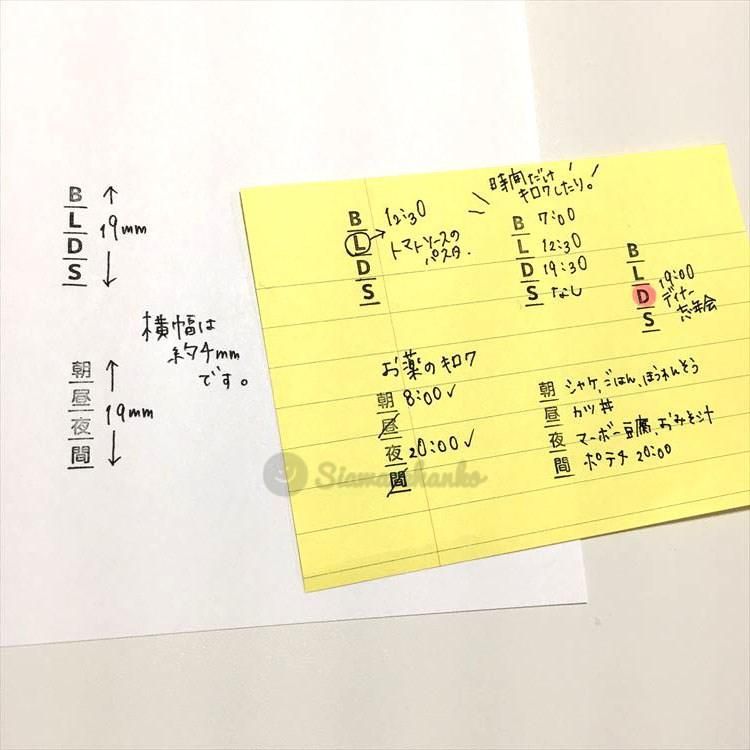 B
L
D
S
19mm
横幅は
約4mm
です。
朝
昼
夜
間
19mm
B 12:30
L トマトソースの
パスタ.
D
S
時間だけ
キロクしたり。
B 7:00
L 12:30
D 19:30
S なし
B
L
D 19:00
ディナー
忘年会
S
お薬のキロク
朝 8:00✓
昼
夜 20:00✓
間
朝 シャケ、ごはん、ほうれんそう
昼 カツ丼
夜 マーボー豆腐、おみそ汁
間 ポテチ 20:00
Siamachanko